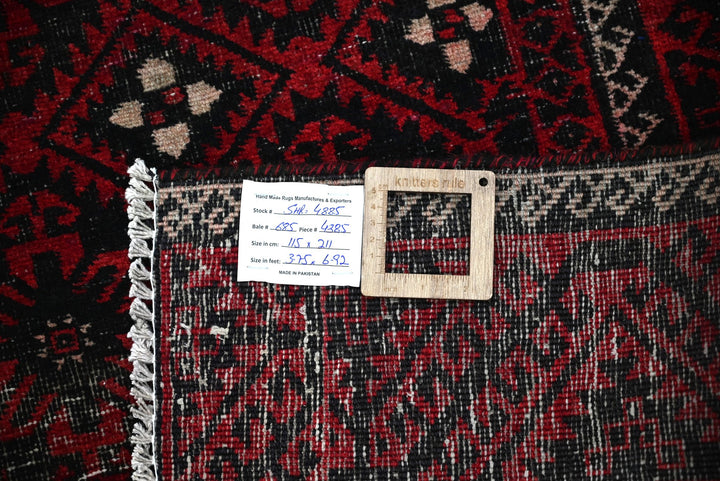 Hand Made Rugs Manufactures & Exporters
Stock # SHR: 4885
Bale # 685 Piece # 4385
Size in cm: 115 x 211
Size in feet: 3.75 x 6.92
MADE IN PAKISTAN
knitters rule